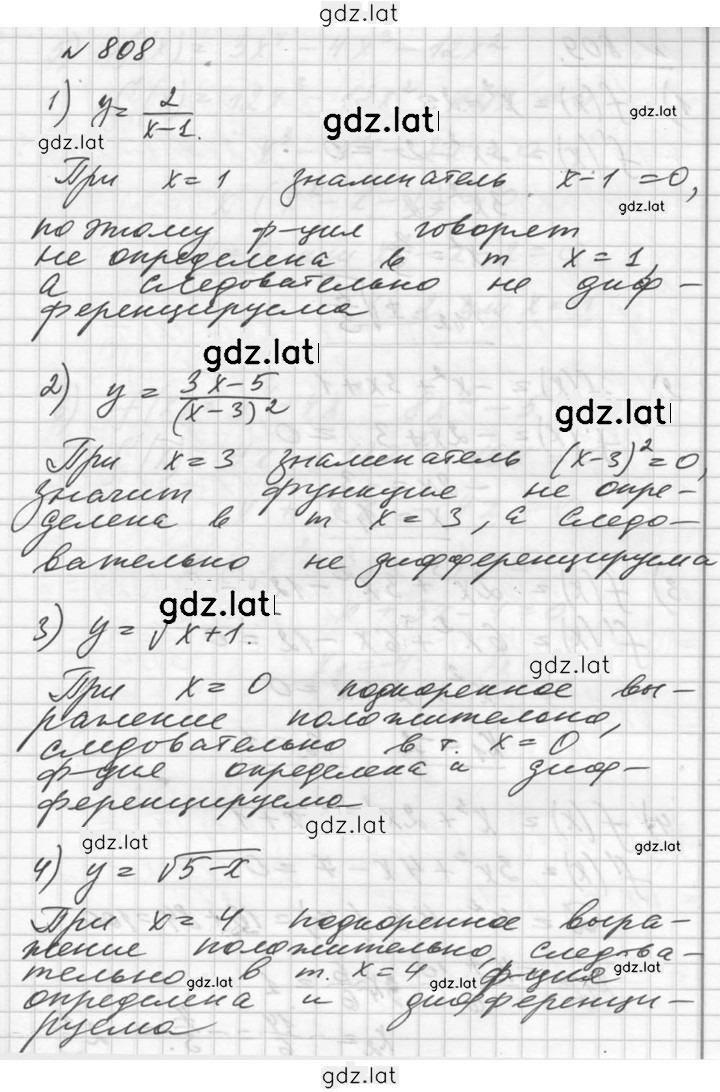 gdz.lat
№ 808
1) y = 2/(x-1).
gdz.lat
gdz.lat
При x=1 знаменатель x-1=0,
gdz.lat
поэтому ф-ция говорят
не определена в т x=1,
а следовательно не диф-
ференцируема
gdz.lat
2) y = (3x-5)/(x-3)²
gdz.lat
При x=3 знаменатель (x-3)²=0,
значит функция не опре-
делена в т x=3, а следо-
вательно не дифференцируема
gdz.lat
3) y = √x+1.
gdz.lat
При x=0 подкоренное вы-
ражение положительно,
следовательно в т. x=0
ф-ция определена и диф-
ференцируема
gdz.lat
gdz.lat
gdz.lat
4) y = √5-x
При x=4 подкоренное выра-
жение положительно, следова-
тельно в т. x=4 ф-ция
gdz.lat
gdz.lat
gdz.lat
определена и дифференци-
руема
gdz.lat